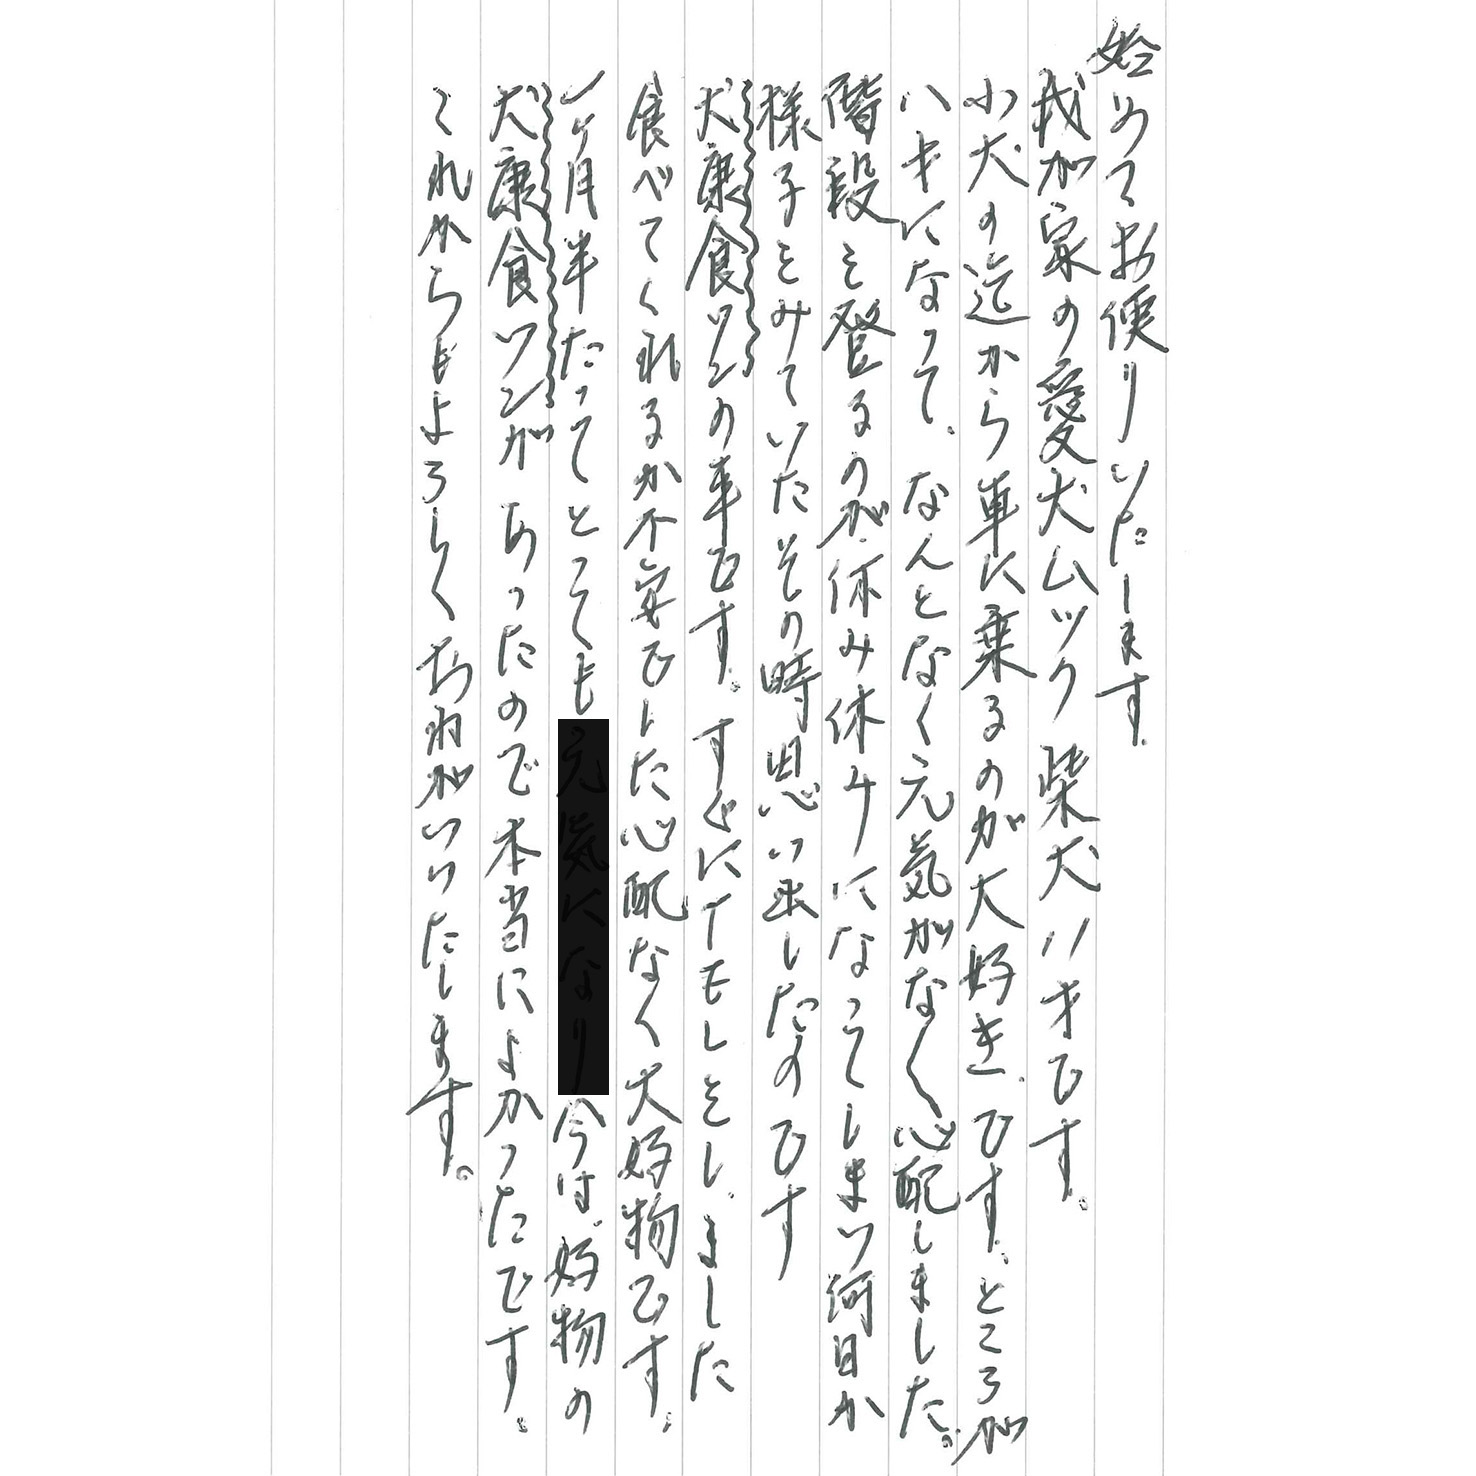 始めてお便りいたします
我が家の愛犬ムック 柴犬八才です。
小犬の迄から車に乗るのが大好きです。ところが
八才になって、なんとなく元気がなく心配しました。
階段を登るのが休み休みになってしまい何日か
様子をみていたその時思い出したのです
犬康食ワンの事です。すぐにTELをしました
食べてくれるか不安でした心配なく大好物です。
1ヶ月半たってとっても元気になり今は、好物の
犬康食ワンがあったので本当によかったです。
これからもよろしくおねがいいたします。